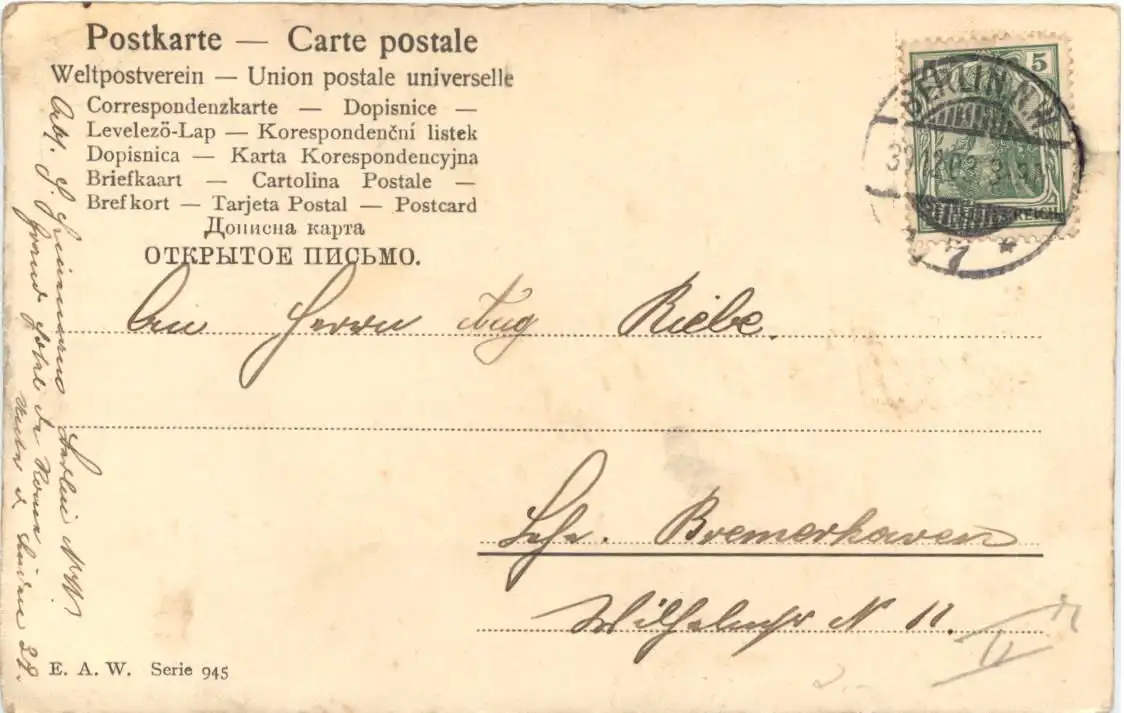 Postkarte — Carte postale
Weltpostverein — Union postale universelle
Correspondenzkarte — Dopisnice —
Levelezö-Lap — Korespondenční listek
Dopisnica — Karta Korespondencyjna
Briefkaart — Cartolina Postale —
Brefkort — Tarjeta Postal — Postcard
Дописна карта
ОТКРЫТОЕ ПИСЬМО.
5
BERLIN N.W.
REICH
7 *
An Herrn Aug Riebe.
Lehe. Bremerhaven
Wilhelmstr N 11.
Berlin NW
Grand Hotel de Rome
Unter d Linden 39.
E. A. W. Serie 945